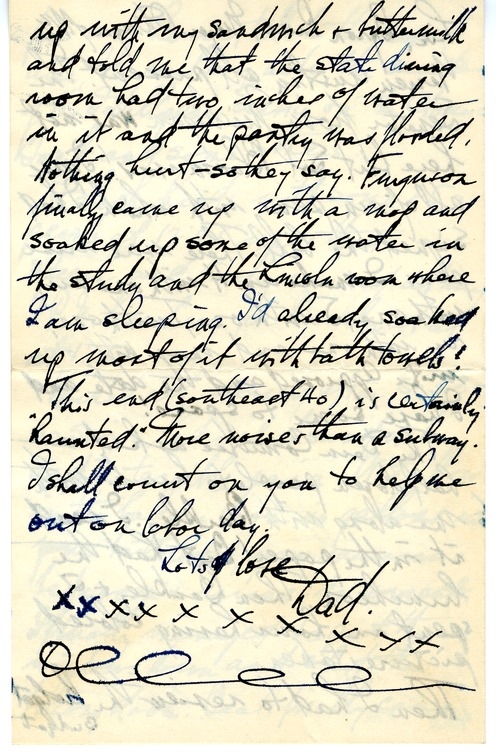 up with my sandwich + buttermilk
and told me that the state dining
room had two inches of water
in it and the pantry was flooded.
Nothing hurt - so they say. Ferguson
finaly came up with a mop and
soaked up some of the water in
the study and the Lincoln room where
I am sleeping. I'd already soaked
up most of it with bath towels!
This end (southeast 40) is certainly
"haunted." More noises than a subway.
I shall count on you to help me
out on labor day.
Lots of love
Dad.
xx x x x x x x x x x
O